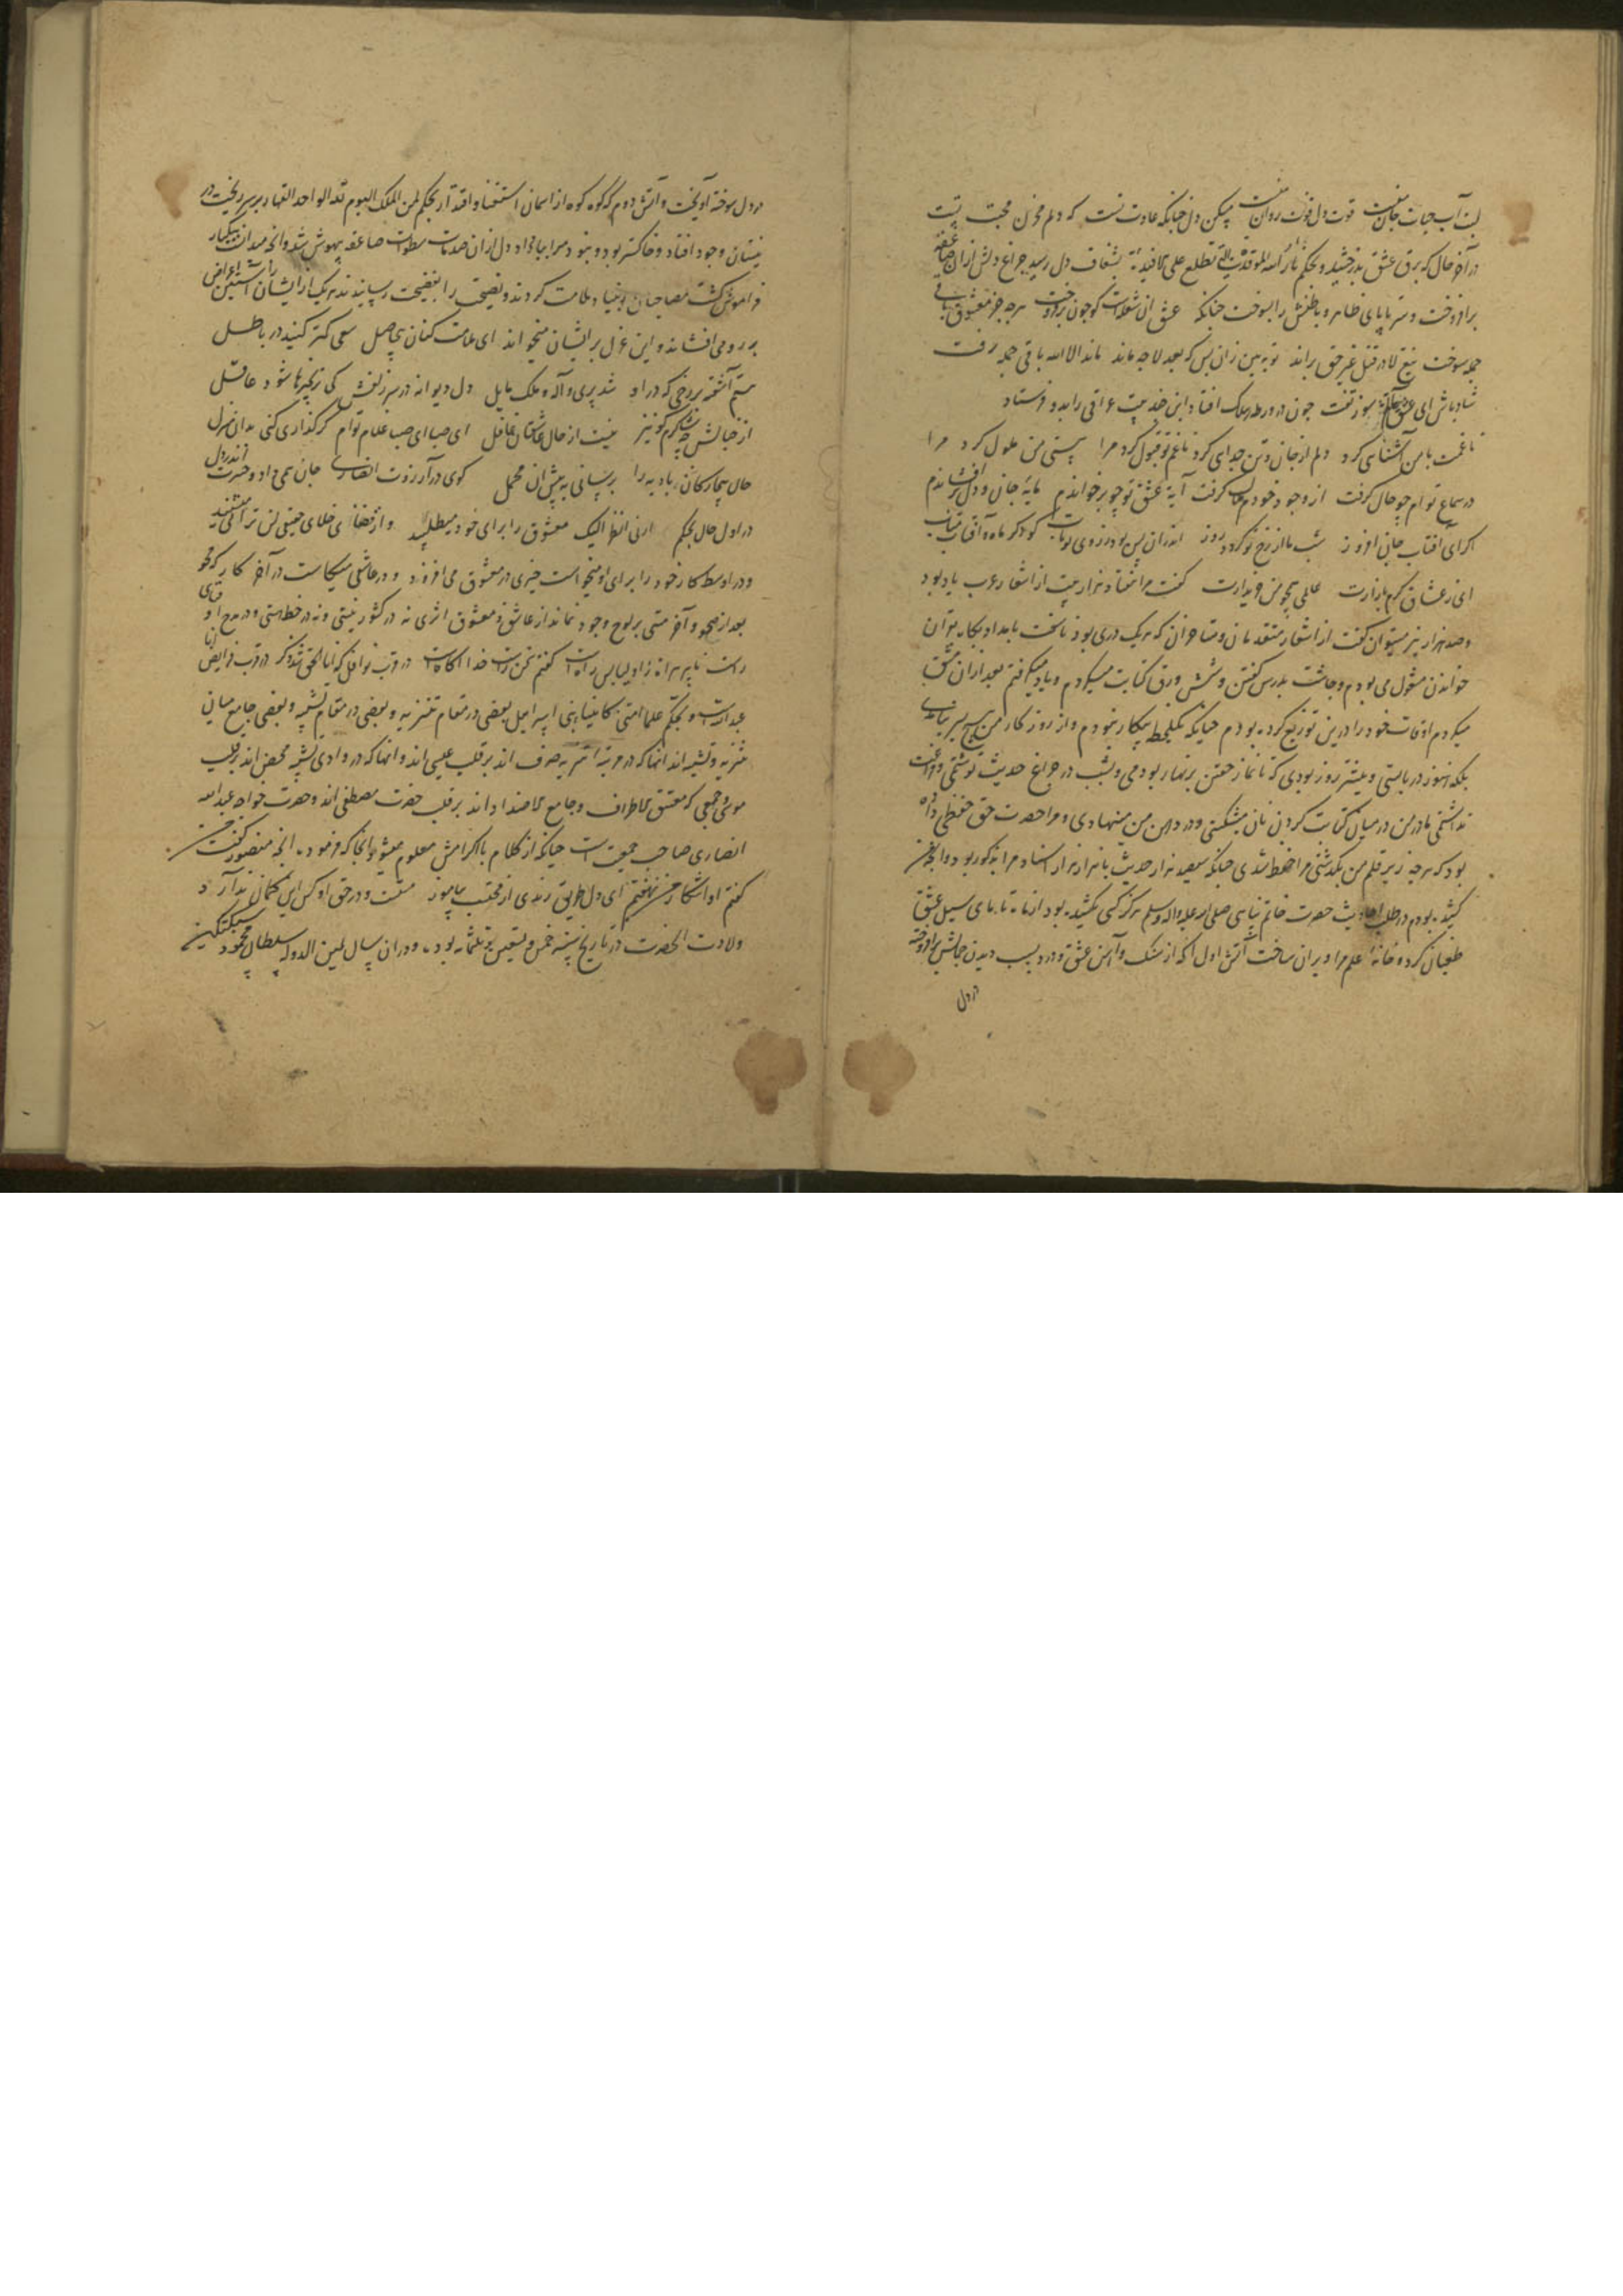 لبت آب حیات جان منست قوت دل قوت روان منست چکن دل چنانکه عادت تست که دلم مخزن محبت تست
در آخر حال که برق عشق بدرخشید و بحکم نار الله الموقدة التی تطلع علی الافئدة بشغاف دل رسید چراغ دلش ازان صاعقه
برافروخت و سرتاپای ظاهر و باطنش را بسوخت چنانکه عشق آن شعله است کو چون برفروخت هرچه جز معشوق باقی
جمله سوخت تیغ لا در قتل غیر حق براند توبه بین زان پس که بعد لا چه ماند ماند الا الله باقی جمله رفت
شاد باش ای عشق سوز تفت چون در ورطه هلاک افتاد این چند بیت عراقی را بدو فرستاد
تا غمت با من آشنایی کرد دلم از جان و تن جدایی کرد تا غم تو قبول کرد مرا هستی من ملول کرد مرا
در سماع توام چو حال گرفت از وجود خودم ملال گرفت آیه عشق تو چو برخواندم مایه جان و دل برافشاندم
اگر ای آفتاب جان افروز شب ما از رخ تو گردد روز اندران بس بود ز روی تو تاب گو دگر ماه و آفتاب متاب
ای ز عشاق گرم بازارت عالمی همچو من خریدارت گفت مرا هفتاد هزار بیت از اشعار عرب یاد بود
و صد هزار نیز میتوان گفت از اشعار متقدمان و متاخران که هر یک دری بود ناسفته بامداد پگاه بقرآن
خواندن مشغول می بودم و چاشت بدرس گفتن و شش ورق کتابت میکردم و یاد میگرفتم بعد ازان مشق
میکردم اوقات خود را درین توزیع کرده بودم چنانکه یک لحظه بیکار نبودم و از روزگار من هیچ بسر نیامدی
بلکه هنوز دربایستی و بیشتر روز بودی که تا نماز خفتن بر نهار بودمی و بشب در چراغ حدیث نوشتمی و فراغت
نداشتمی مادر من در میان کتابت کردن نان میشکستی و در دهن من مینهادی و مرا حضرت حق حفظی داده
بود که هرچه زیر قلم من بگذشتی مرا حفظ شدی چنانکه سیصد هزار حدیث با هزار هزار اسناد مرا مذکور بود و آنچه من
کشیده بودم در طلب احادیث حضرت خاتم پناهی صلی الله علیه واله وسلم هرگز کسی نکشیده بود سیل عشق
طغیان کرد و خانه علم مرا ویران ساخت آتش اول آنکه از سنگ و آهن عشق و درد بسبب دیدن جمالش برافروخته
در دل
در دل سوخته آویخت و آتش دوم که کوه کوه از آسمان استغنا و اقتدار بحکم لمن الملک الیوم لله الواحد القهار بر سر ریخت در
نیستان وجود افتاد و خاکستر بود و نبود مرا بباد داد دل ازان صدمات سطوت صاعقه بیهوش شد و آنچه میدانست بیکبار
فراموش گشت مصاحبان بنیاد ملامت کردند و نصیحت را بفضیحت رسانیدند هر یک از ایشان را آستین اعراض
بر رو می افشاند و این غزل بر ایشان میخواند ای ملامت کنان بی حاصل سعی کمتر کنید در باطل
ستم آشفته بر رخی که در او شد پری واله و ملک مایل دل دیوانه در سر زلفش کی بزنجیرها شود عاقل
از خیالش چه شاکرم کو نیز نیست از حال عاشقان غافل ای صبا ای صبا غلام توام گر گذاری کنی بدان منزل
حال بیچارگان بادیه را برسانی به پیش آن محمل گوی در آرزوت انصاری جان همی داد و حسرت اندر دل
در اول حال بحکم ارنی انظر الیک معشوق را برای خود میطلبید و از فضای خلای حقیقی لن ترانی میشنید
و در اوسط کار خود را برای او میخواست چیزی در معشوق می افزود و در عاشقی میکاست در آخر کار که محو
بعد از محو و آخر مستی بر لوح وجود نماند از عاشق و معشوق اثری نه در کشور نیستی و نه در خطه هستی و در مدح او
راست پیر هراة زاد لباس راست گفتم تحسین راست خدا آگاهست در قرب نوافل گر انا الحق شد ذکر در قرب فرایض انا
عبد است و بحکم علماء امتی کانبیاء بنی اسرائیل بعضی در مقام تنزیه و بعضی در مقام تشبیه و بعضی جامع میان
تنزیه و تشبیه اند آنها که در مرتبه تنزیه صرف اند بر قلب عیسی اند و آنها که در وادی تشبیه محض اند بر قلب
موسی و جمعی که معتنق الاطراف و جامع الاضداد اند بر قلب حضرت مصطفی اند و حضرت خواجه عبدالله
انصاری صاحب جمعیت است چنانکه از کلام با اکرامش معلوم میشود آنجا که فرموده آنچه منصور گفت من
گفتم او آشکار من نهفتم ای دل طریق رندی از محتسب بیاموز مستست و در حق او کس این گمان ندارد
ولادت آنحضرت در تاریخ سنه خمس و تسعین و ثلثمائه بوده و دران سال یمین الدوله سلطان محمود سبکتکین